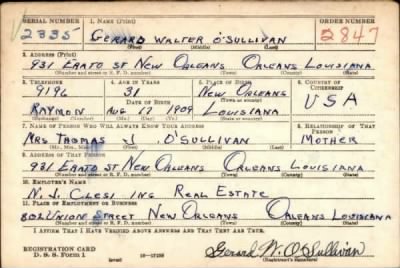 SERIAL NUMBER 1. NAME (Print) ORDER NUMBER
2335 GERARD WALTER O'SULLIVAN 2847
(First) (Middle) (Last)
2. ADDRESS (Print)
931 ERATO ST NEW ORLEANS ORLEANS LOUISIANA
(Number and street or R. F. D. number) (Town) (County) (State)
3. TELEPHONE 4. AGE IN YEARS 5. PLACE OF BIRTH 6. COUNTRY OF CITIZENSHIP
9196 31 NEW ORLEANS
DATE OF BIRTH (Town or county) USA
RAYMON AUG 17 1909 LOUISIANA
(Exchange) (Number) (Mo.) (Day) (Yr.) (State or country)
7. NAME OF PERSON WHO WILL ALWAYS KNOW YOUR ADDRESS 8. RELATIONSHIP OF THAT PERSON
MRS THOMAS J. O'SULLIVAN MOTHER
(Mr., Mrs., Miss) (First) (Middle) (Last)
9. ADDRESS OF THAT PERSON
931 ERATO ST NEW ORLEANS ORLEANS LOUISIANA
(Number and street or R. F. D. number) (Town) (County) (State)
10. EMPLOYER'S NAME
N. J. CLESI INC REAL ESTATE
11. PLACE OF EMPLOYMENT OR BUSINESS
802 UNION STREET NEW ORLEANS ORLEANS LOUISIANA
(Number and street or R. F. D. number) (Town) (County) (State)
I AFFIRM THAT I HAVE VERIFIED ABOVE ANSWERS AND THAT THEY ARE TRUE.
REGISTRATION CARD
D. S. S. Form 1 (over) Gerard W. O'Sullivan
(Registrant's signature)